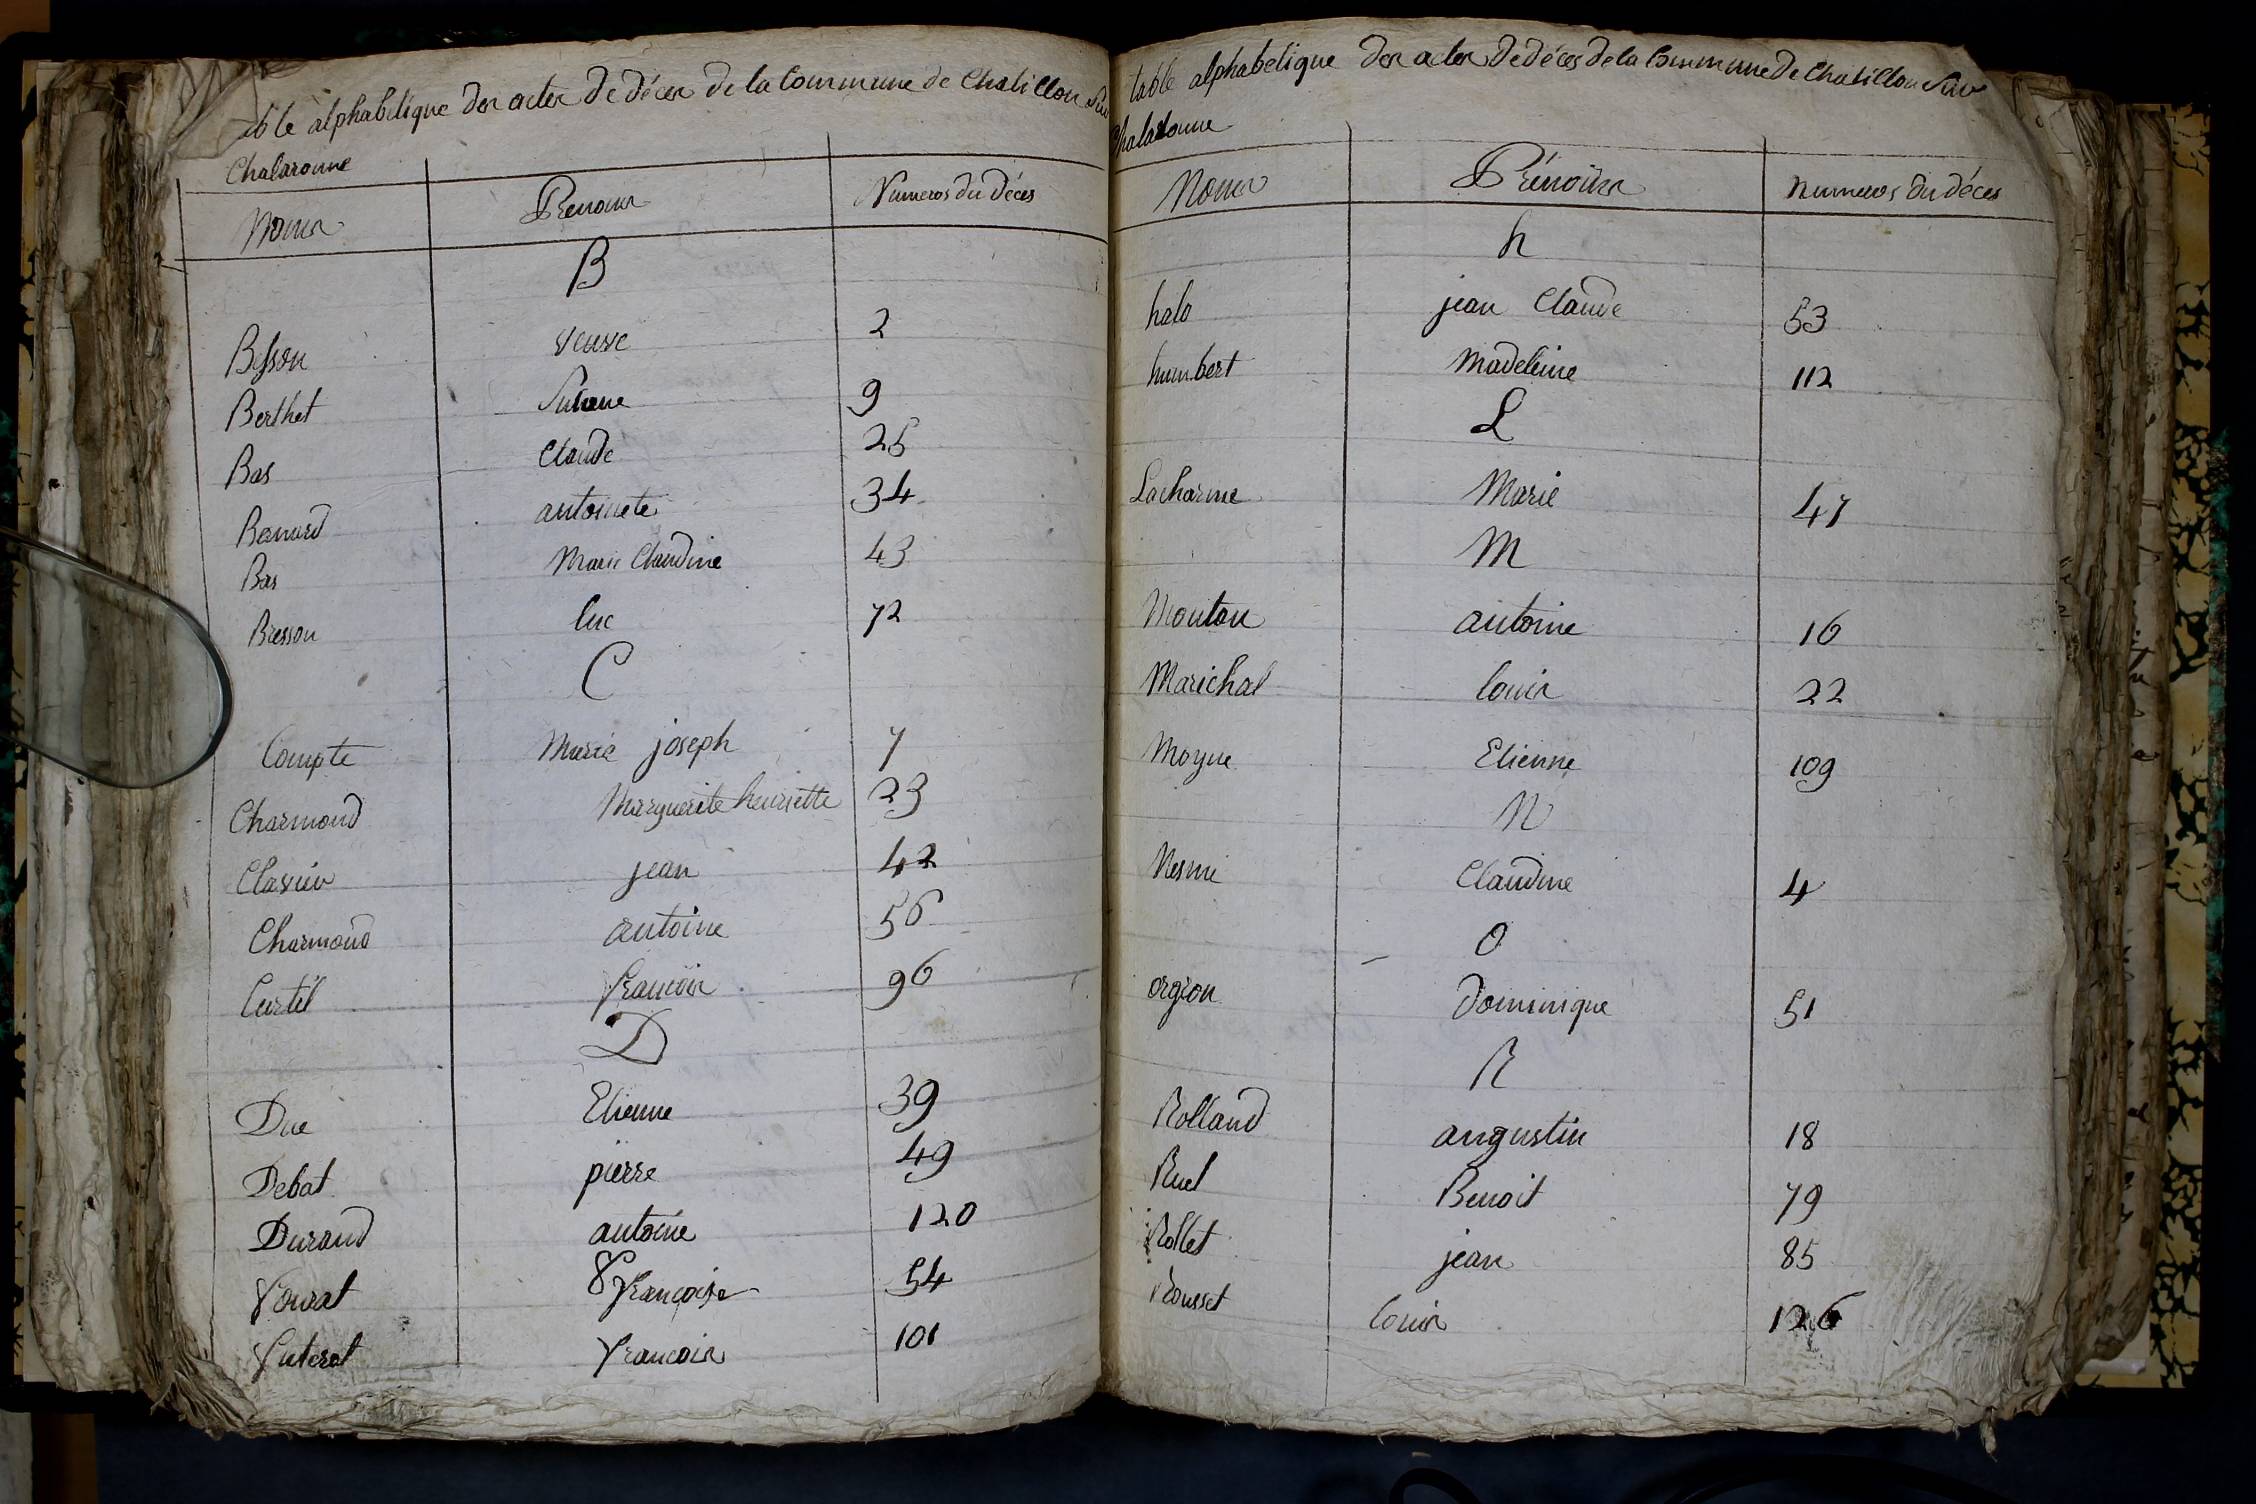 able alphabetique des actes de décès de la Commune de Chatillon sur
Chalaronne
Noms Prénoms Numeros du décès
B
Besson veuve 2
Berthet 9
Bas Claude 25
Benard antoinete 34
Bas Marie Claudine 43
Bresson luc 72
C
Compte Marie joseph 7
Charmond Marguerite henriette 23
Clavier jean 42
Charmond antoine 56
Curtil francois 96
D
Duc Etienne 39
Debat pierre 49
Durand antoine 120
F
fourat francoise 54
futerot francois 101
table alphabetique des actes de décès de la Commune de Chatillon sur
Chalaronne
Noms Prénoms Numeros du décès
h
halo jean Claude 53
humbert Madeleine 112
L
Lacharme Marie 47
M
Mouton antoine 16
Marichal louis 22
Moyne Etienne 109
N
Nesme Claudine 4
O
orgeon Dominique 51
R
Rolland augustin 18
Ruel Benoit 79
Rollet jean 85
Rousset louis 126